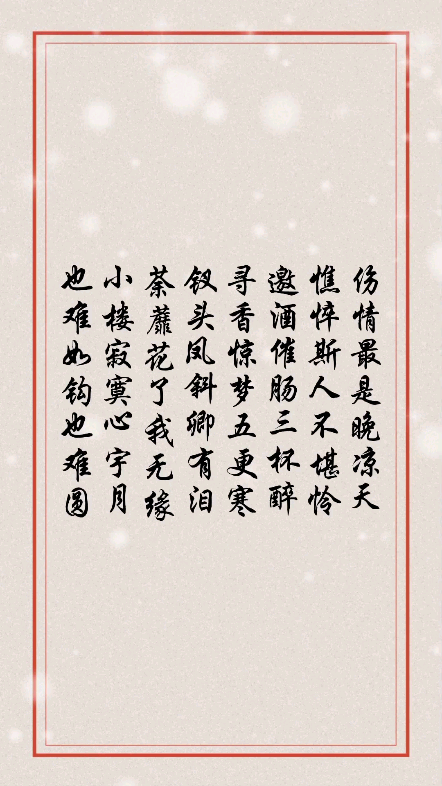 伤情最是晚凉天
憔悴斯人不堪怜
邀酒催肠三杯醉
寻香惊梦五更寒
钗头凤斜卿有泪
荼蘼花了我无缘
小楼寂寞心宇月
也难如钩也难圆